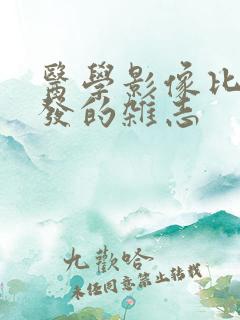 醫學影像比
發的雑志
九歡哈
未任同意禁止转载